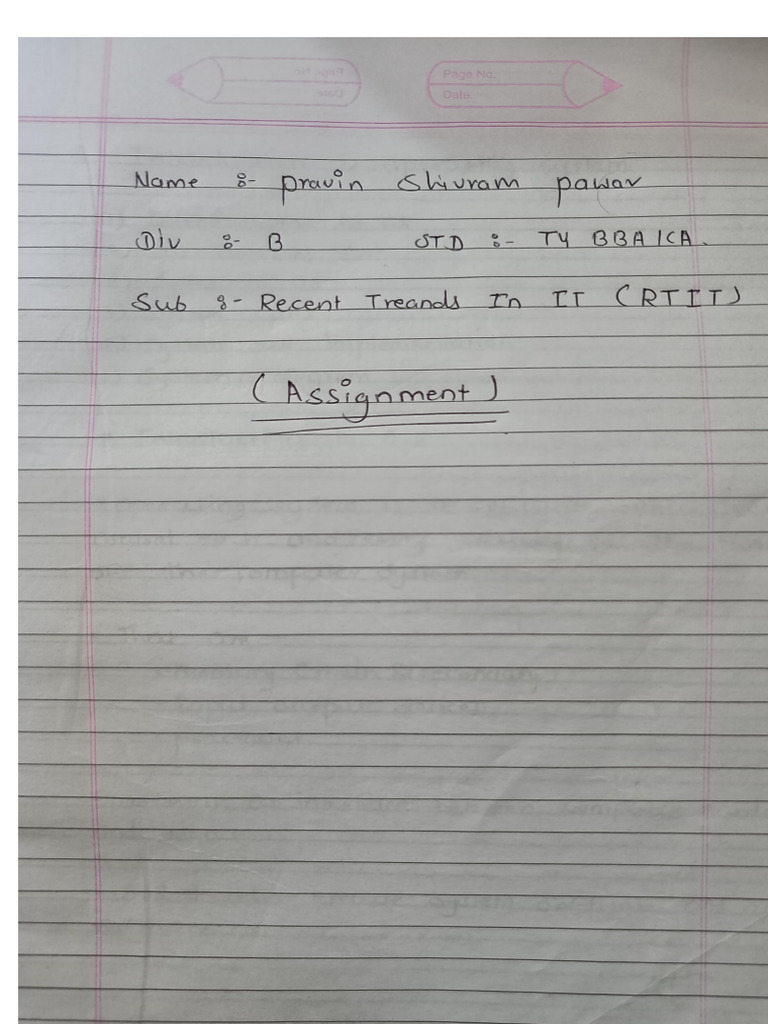 Page No.
Date.
Name :- Pravin Shivram Pawar
Div :- B STD :- TY BBA/CA.
Sub :- Recent Treands In IT (RTIT)
(Assignment)